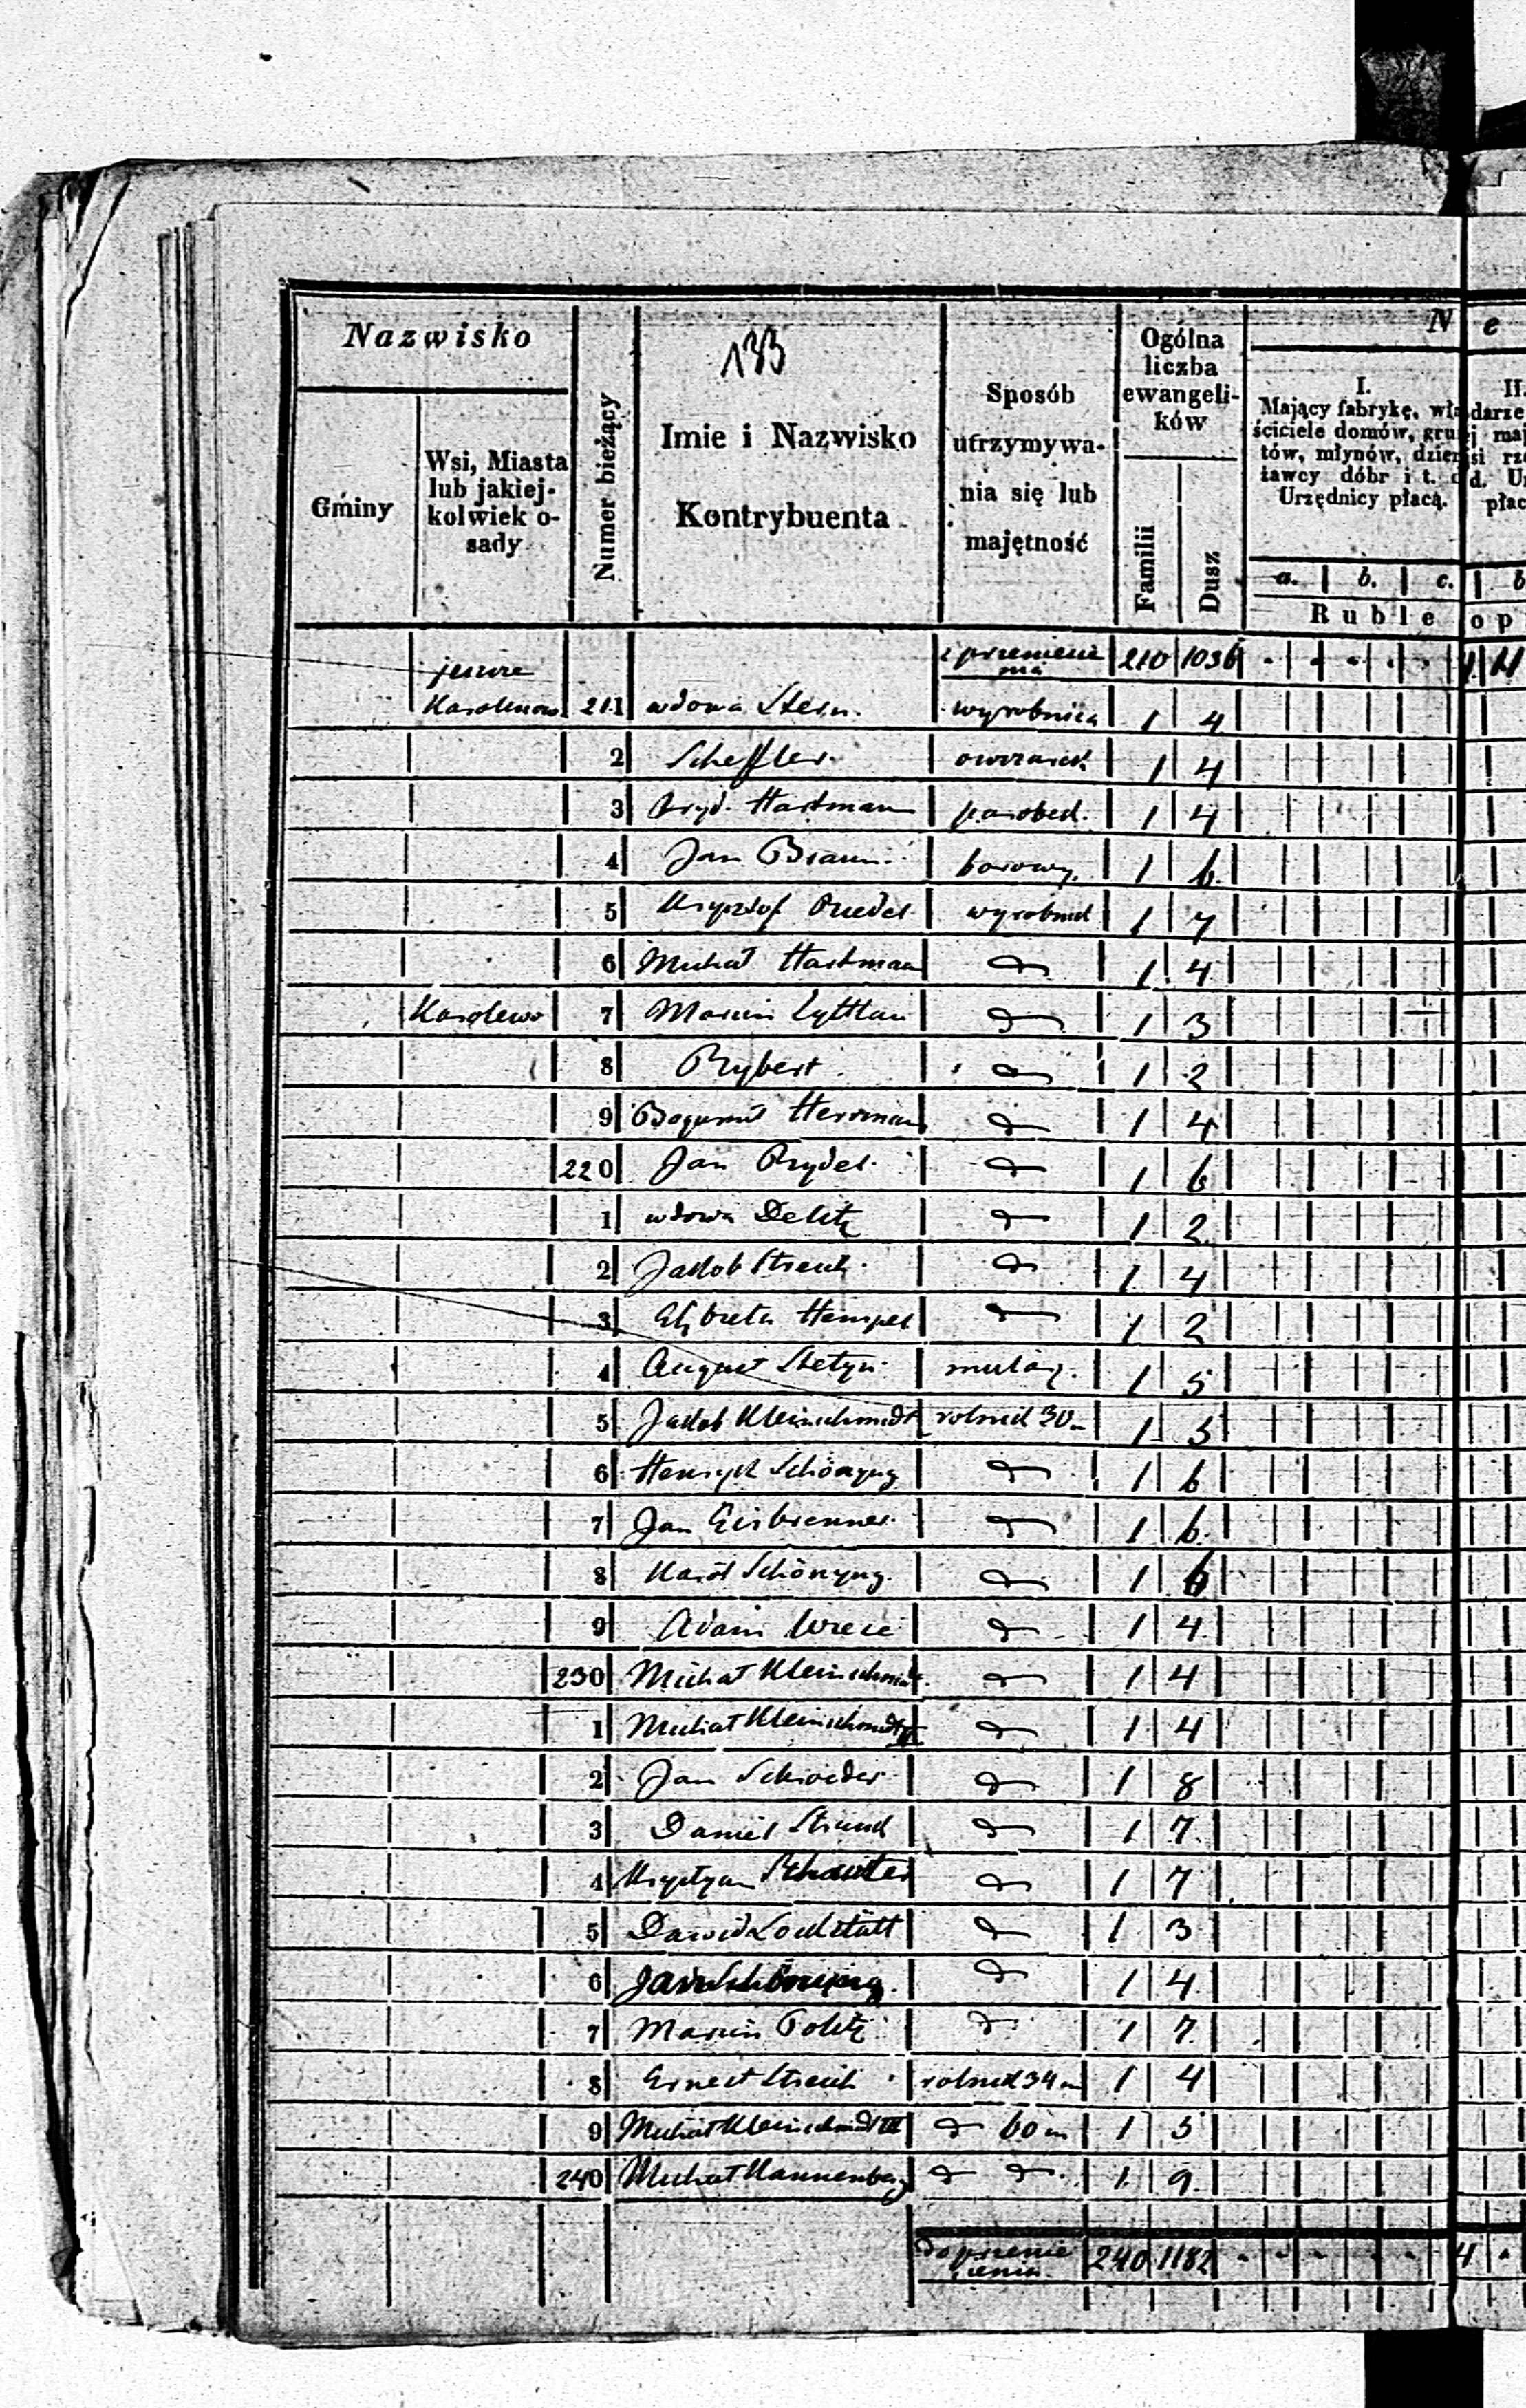 Nazwisko
Gminy
Wsi, Miasta
lub jakiej-
kolwiek o-
sady
Numer bieżący
133
Imie i Nazwisko
Kontrybuenta
Sposób
utrzymywa-
nia się lub
majętność
Ogólna
liczba
ewangeli-
ków
Familii
Dusz
N e
I.
Mający fabrykę, wła
ściciele domów, grun
tów, młynów, dzier
żawcy dóbr i t. d.
Urzędnicy płacą.
II.
darze
j maj
si rzę
d. Ur
płac
a. b. c. b
Ruble op
z przeniesie
nia 210 1036
Karolinow 211 wdowa Stern wyrobnica 1 4
2 Scheffler owczarek 1 4
3 Hartman parobek 1 4
4 Jan Braun borowy 1 6
5 Krysztof wyrobnik 1 7
6 Michał Hartman 1 4
Karolewo 7 Marcin 1 3
8 Rybert 1 2
9 Bogumił Herrman 1 4
220 Jan Rydel 1 6
1 wdowa Delitz 1 2
2 Jakob Streich 1 4
3 Elżbieta Hempel 1 2
4 August Stetyn mularz 1 5
5 Jakob Kleinschmidt rolnik 30 m 1 5
6 Henryk Schönyng 1 6
7 Jan Eisbrenner 1 6
8 Karol Schönyng 1 6
9 Adam 1 4
230 Michał Kleinschmidt 1 4
1 Michał Kleinschmidt II 1 4
2 Jan Schroeder 1 8
3 Daniel 1 7
4 Krystyan 1 7
5 Dawid Lockstätt 1 3
6 Jan Schönyng 1 4
7 Marcin 1 7
8 Ernest Streich rolnik 34 m 1 4
9 Michał Kleinschmidt III 60 m 1 5
240 Michał Kannenberg 1 9
do przenie
sienia 240 1182 4